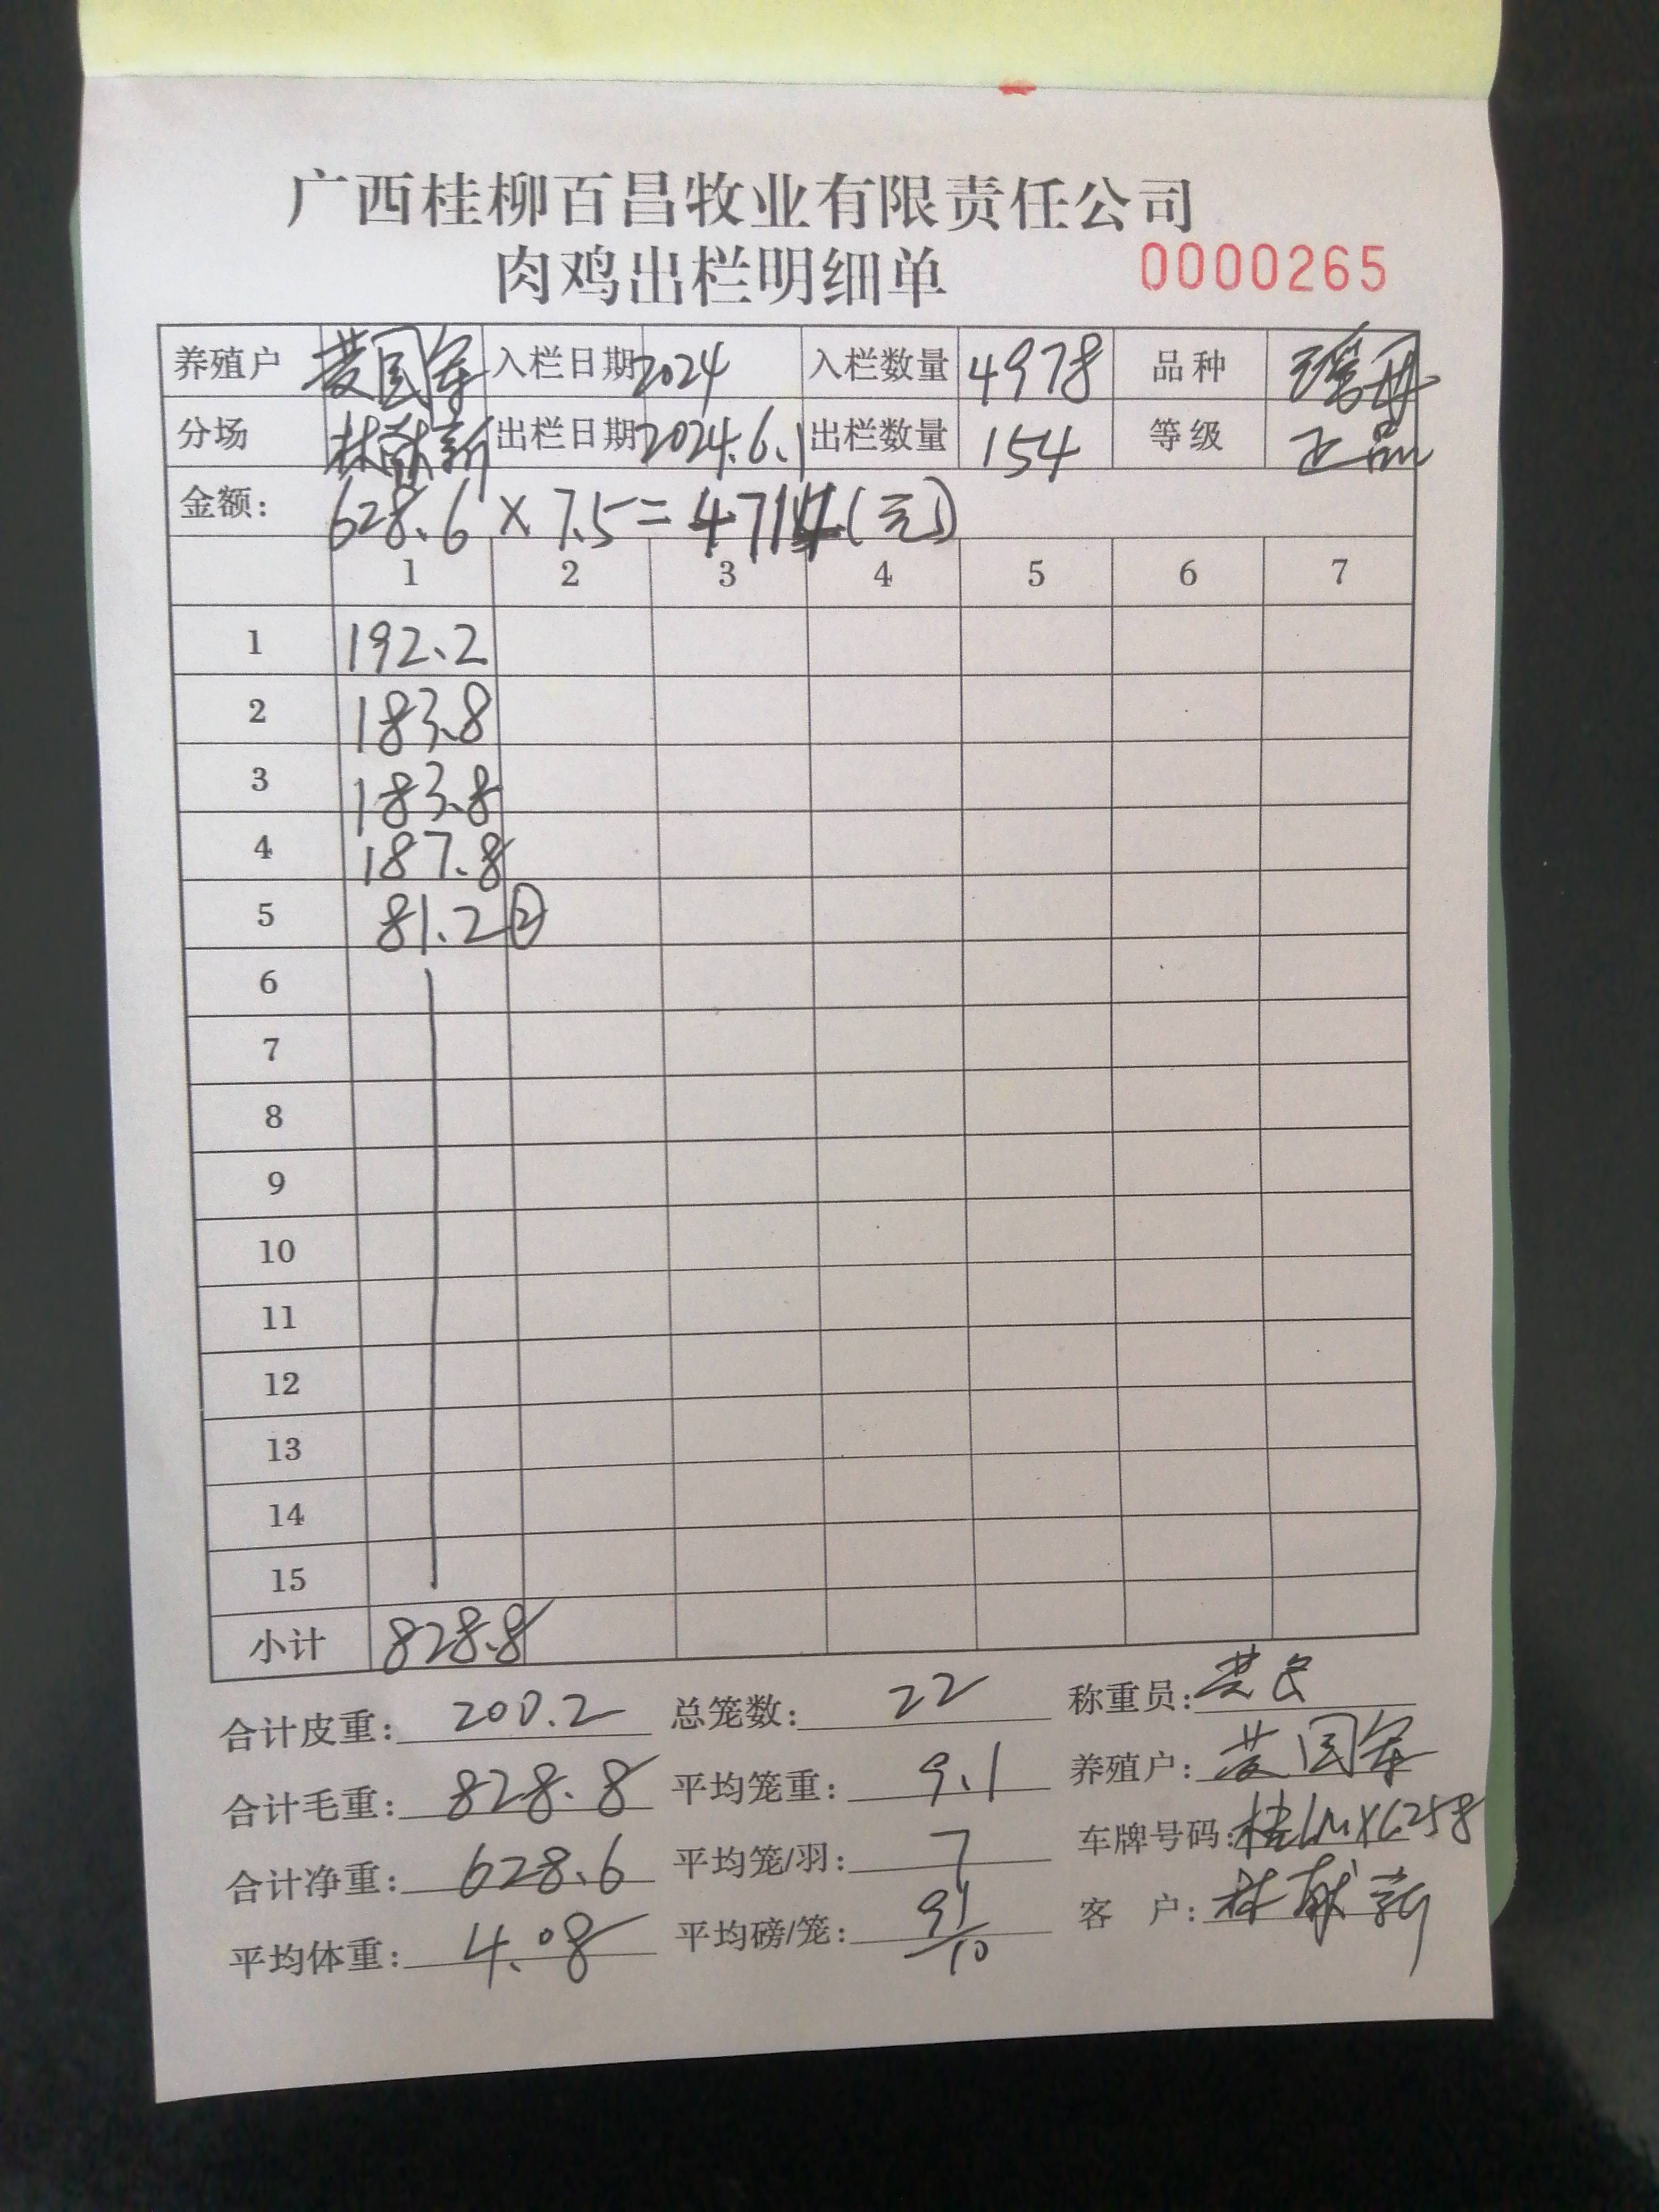 广西桂柳百昌牧业有限责任公司
肉鸡出栏明细单 0000265
养殖户 黄国军 入栏日期 2024 入栏数量 4978 品种
分场 林献新 出栏日期 2024.6.1 出栏数量 154 等级 正品
金额: 628.6 × 7.5 = 4714 (元)
1 2 3 4 5 6 7
1 192.2
2 183.8
3 183.8
4 187.8
5 81.2 ②
6
7
8
9
10
11
12
13
14
15
小计 828.8
合计皮重: 200.2 总笼数: 22 称重员:
合计毛重: 828.8 平均笼重: 9.1 养殖户: 黄国军
合计净重: 628.6 平均笼/羽: 7 车牌号码:
平均体重: 4.08 平均磅/笼: 91/10 客户: 林献新